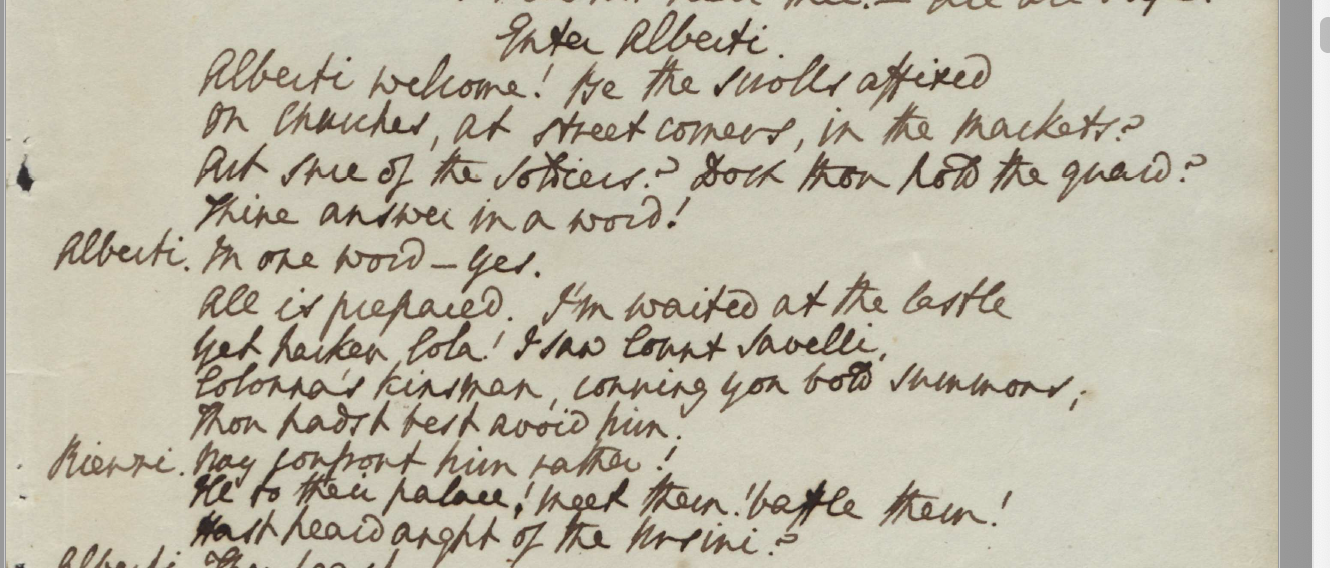 Enter Alberti.
Alberti welcome! Be the scrolls affixed
On Churches, at street corners, in the markets?
Art sure of the soldiers? Doth thou hold the guard?
Thine answer in a word!
Alberti. In one word – Yes.
All is prepared. I'm waited at the Castle
Yet harken, Cola! I saw Count Savelli,
Colonna's kinsman, conning yon bold summons;
Thou hadst best avoid him.
Rienzi. Nay confront him rather!
to their palace! meet them! battle them!
Hast heard aught of the Ursini?
Alberti. They